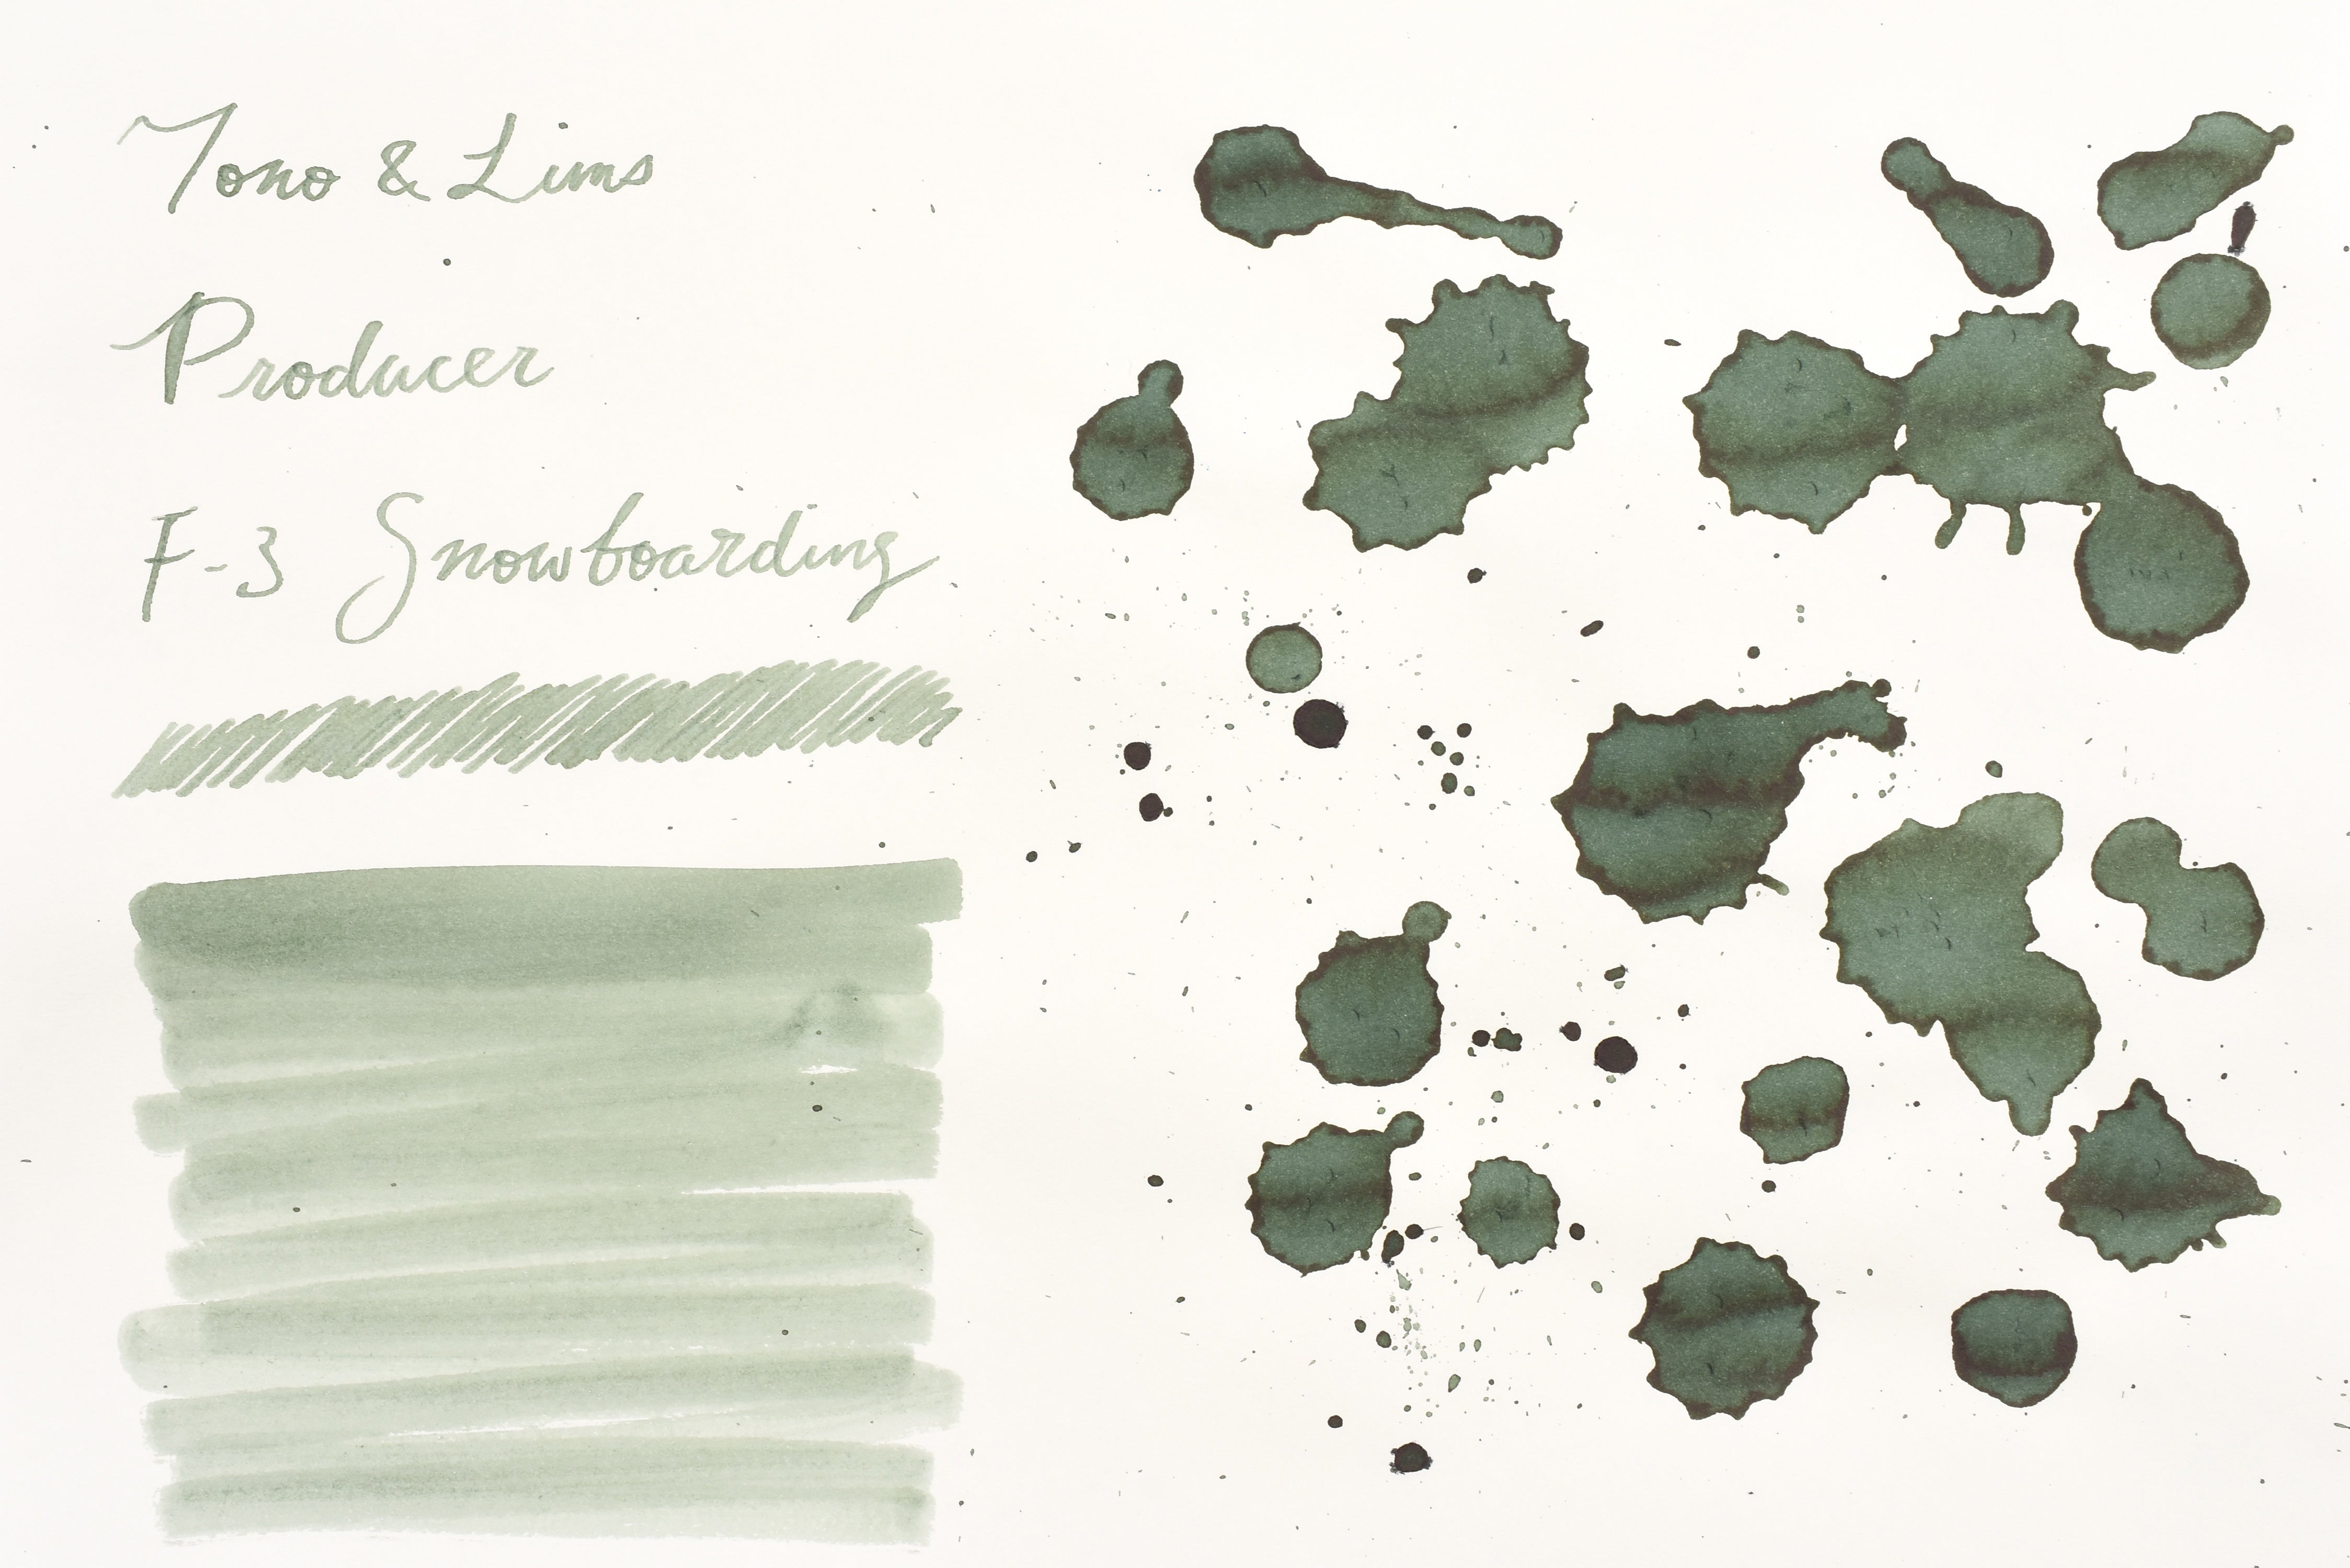 Tono & Lims
Producer
F-3 Snowboarding